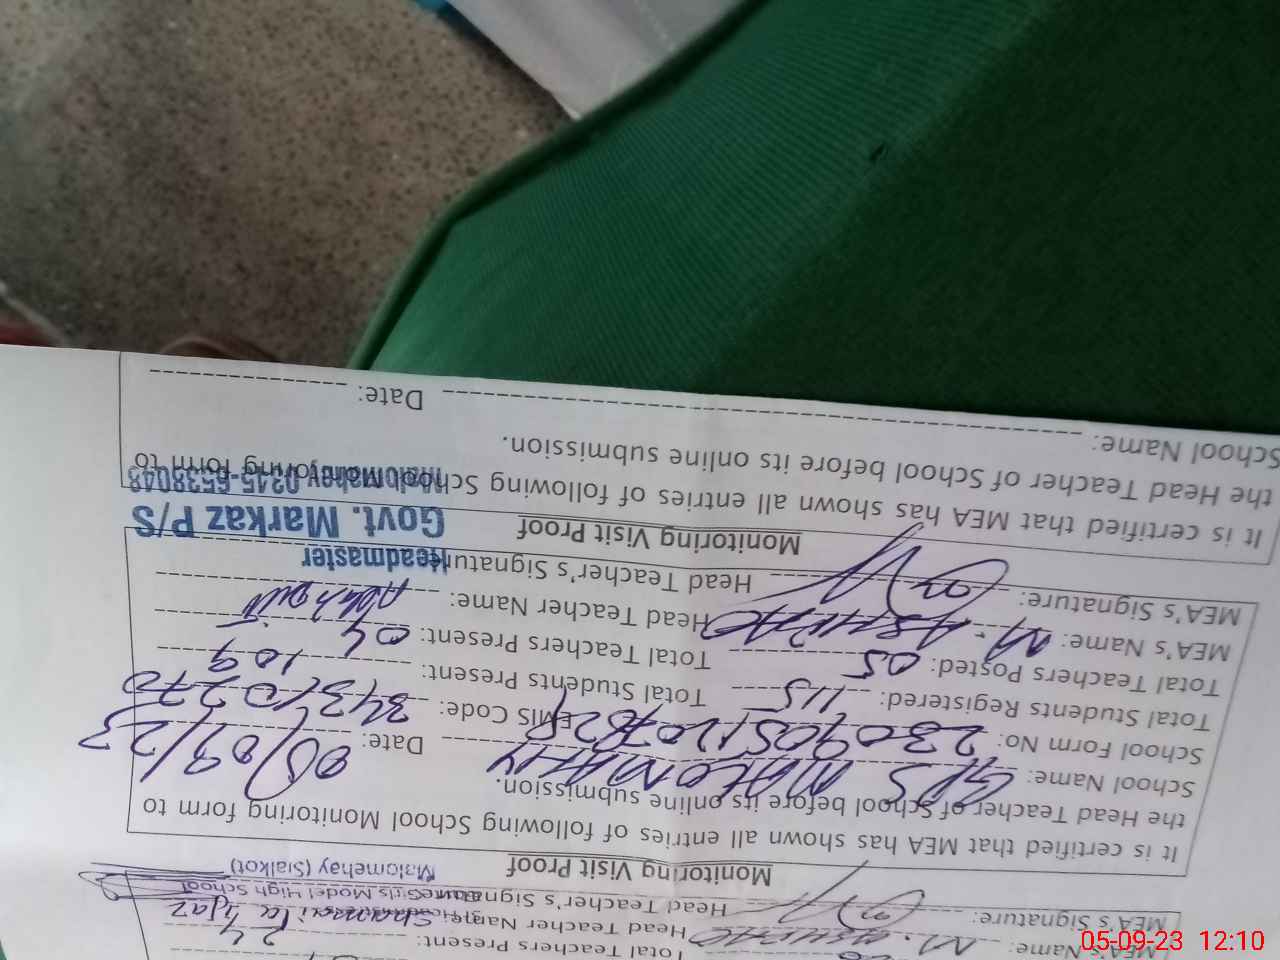 MEA's Name: M.
Total Teachers Present: 24
MEA's Signature:
Head Teacher Name: Shamaila Ijaz
Head Teacher's Signature:
Girls Model High School
Malomehay (Sialkot)
Monitoring Visit Proof
It is certified that MEA has shown all entries of following School Monitoring form to
the Head Teacher of School before its online submission.
School Name: GPS MALOMAHY Date: 05/09/23
School Form No: EMIS Code: 34310270
Total Students Registered: 115 Total Students Present: 109
Total Teachers Posted: 05 Total Teachers Present: 04
MEA's Name: M. Head Teacher Name:
MEA's Signature: Head Teacher's Signature:
Headmaster
Govt. Markaz P/S
0345-6538048
Monitoring Visit Proof
It is certified that MEA has shown all entries of following School Monitoring form to
the Head Teacher of School before its online submission.
School Name: Date:
05-09-23 12:10